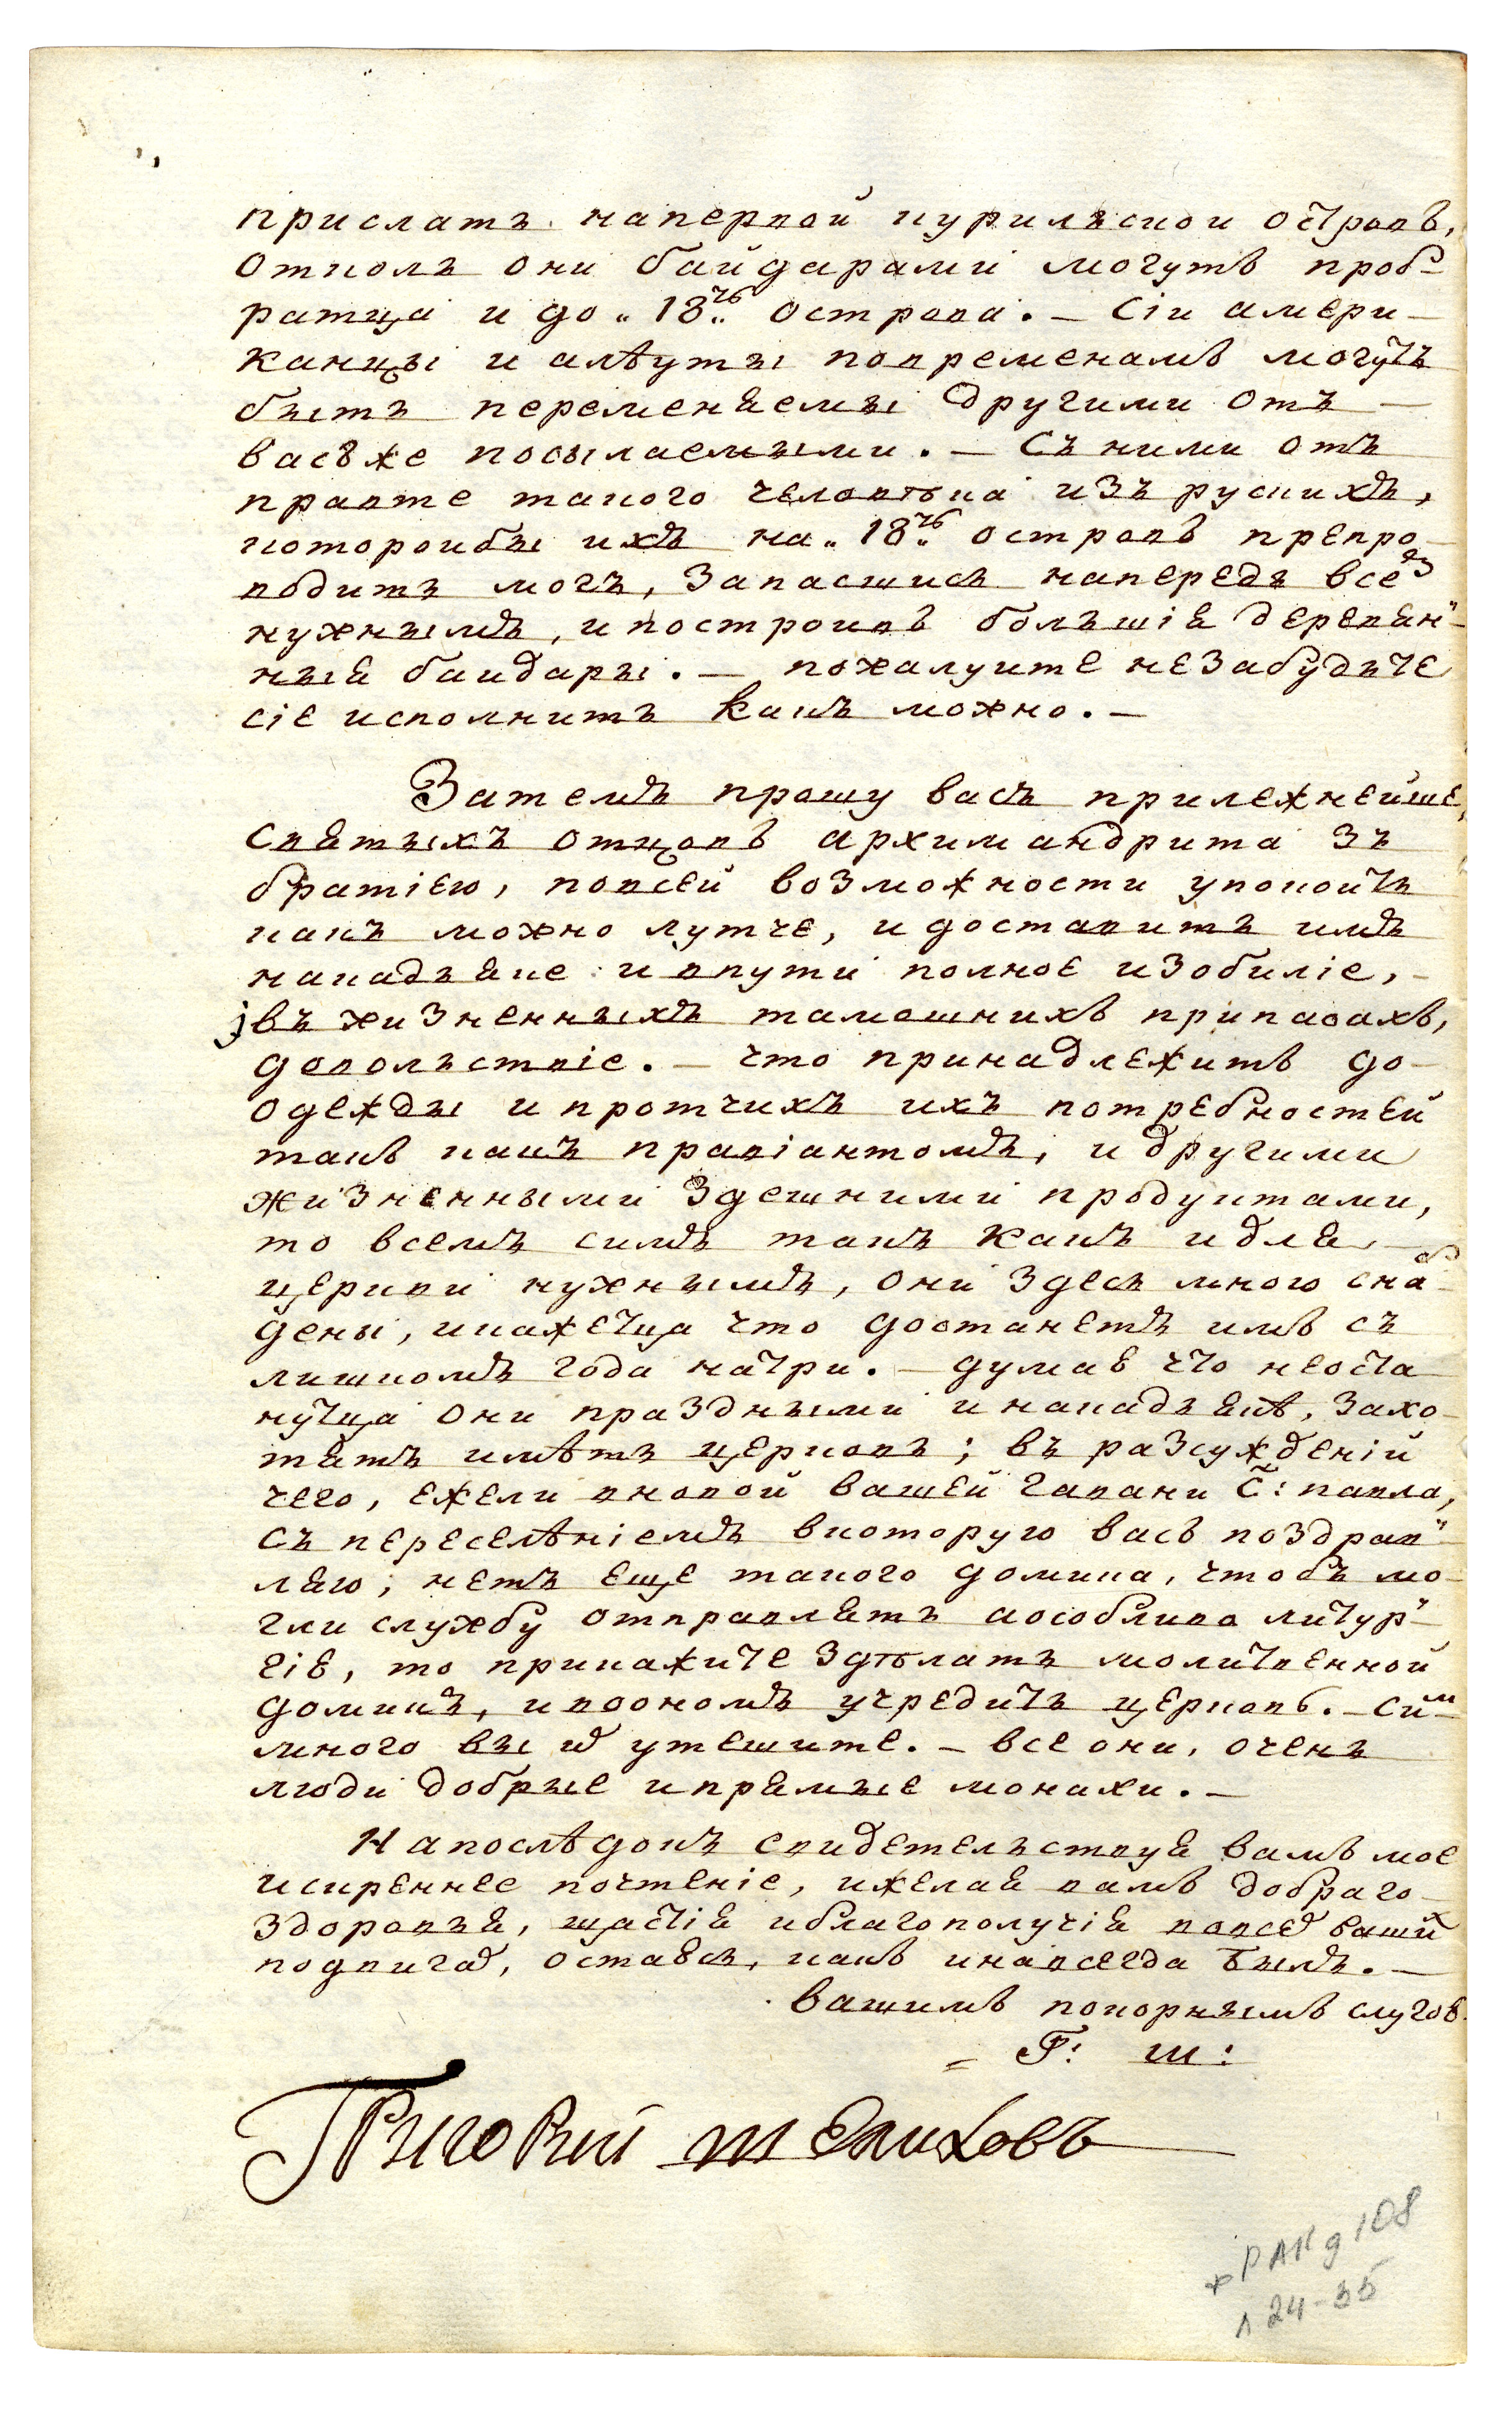 прислать напервой курильскои островъ,
отколь они байдарами могутъ проб-
ратца и до „18го„ острова. — Сіи амери-
канцы и алѣуты повременамъ могутъ
быть переменяемы другими отъ —
васъже посылаемыми. — Съ ними от
правте такого человѣка изъ рускихъ,
которои бы ихъ на „18го„ островъ препро-
водить могъ, запасшись напередъ всемъ
нужнымъ, и построивъ большія деревян-
ныя баидары. — пожалуите незабудьте
сіе исполнить какъ можно. —
Затемъ прошу васъ прилежнейше,
святыхъ отцовъ архимандрита зъ
братіею, повсей возможности упокоить
какъ можно лутче, и доставить имъ
накадьяке и впути полное изобиліе, —
въ жизненныхъ тамошнихъ припасахъ,
довольствіе. — что принадлежитъ до —
одежды и протчихъ ихъ потребностей
такъ какъ правіантомъ, и другими
жизненными здешними продуктами,
то всемъ симъ такъ какъ и для —
церкви нужнымъ, они здесь много снаб-
дены, и кажетца что достанетъ имъ съ
лишкомъ года натри. — думаю что неоста
нутца они праздными и накадьякѣ, захо-
тятъ имѣть церковь; въ разсужденіи
чего, ежели вновой вашей гавани С: павла,
съ переселѣніемъ вкоторую васъ поздрав-
ляю, нетъ еще такого домика, чтобъ мо-
гли службу отправлять аособливо литур-
гію, то прикажите здѣлать молитвенной
домикъ, и воономъ учредить церковь. — Сим
много вы их утешите. — все они, очень
люди добрые и прямые монахи. —
Напослѣдокъ свидетельствуя вамъ мое
искреннее почтеніе, и желая вамъ добраго —
здоровья, щастія и благополучія вовсех ваших
подвигах, остаюсь, какъ инавсегда былъ. —
вашимъ покорнымъ слугою.
Г: Ш:
Григорей Шелиховъ
РАК д 108
л 24-35